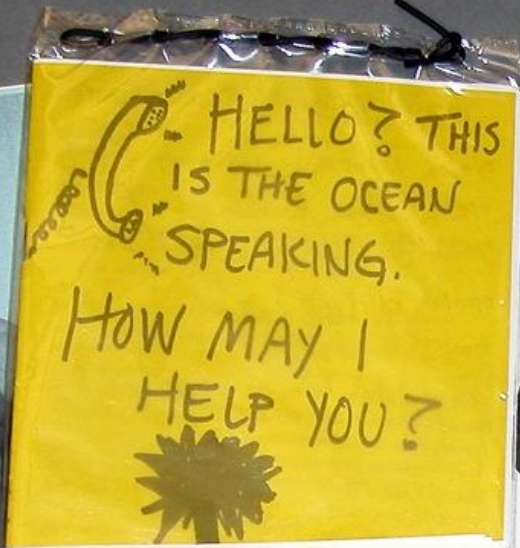 HELLO? THIS
IS THE OCEAN
SPEAKING.
HOW MAY I
HELP YOU?